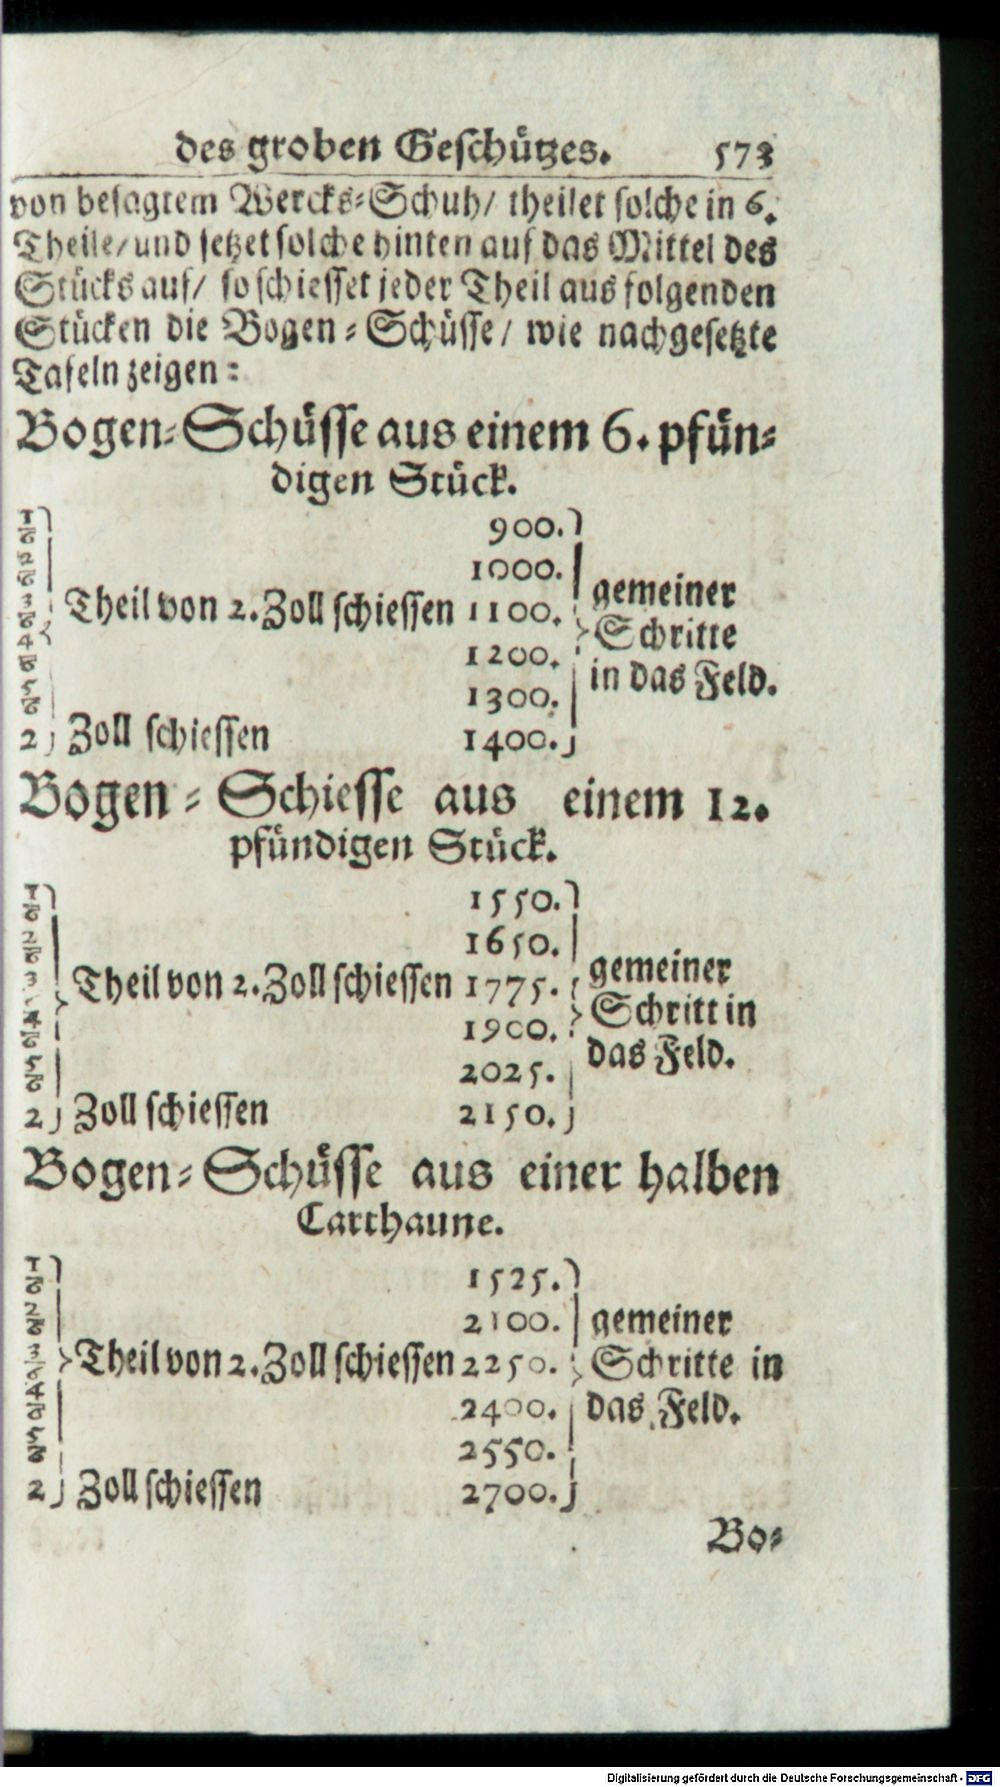 des groben Geschützes. 573
von besagtem Wercks-Schuh/ theilet solche in 6.
Theile/ und setzet solche hinten auf das Mittel des
Stücks auf/ so schiesset jeder Theil aus folgenden
Stücken die Bogen-Schüsse/ wie nachgesetzte
Tafeln zeigen:
Bogen-Schüsse aus einem 6. pfün-
digen Stück.
1/6 900.
2/6 1000.
3/6 Theil von 2. Zoll schiessen 1100. gemeiner
4/6 1200. Schritte
5/6 1300. in das Feld.
2 Zoll schiessen 1400.
Bogen-Schiesse aus einem 12.
pfündigen Stück.
1/6 1550.
2/6 1650.
3/6 Theil von 2. Zoll schiessen 1775. gemeiner
4/6 1900. Schritt in
5/6 2025. das Feld.
2 Zoll schiessen 2150.
Bogen-Schüsse aus einer halben
Carthaune.
1/6 1525.
2/6 2100. gemeiner
3/6 Theil von 2. Zoll schiessen 2250. Schritte in
4/6 2400. das Feld.
5/6 2550.
2 Zoll schiessen 2700.
Bo-
Digitalisierung gefördert durch die Deutsche Forschungsgemeinschaft - DFG